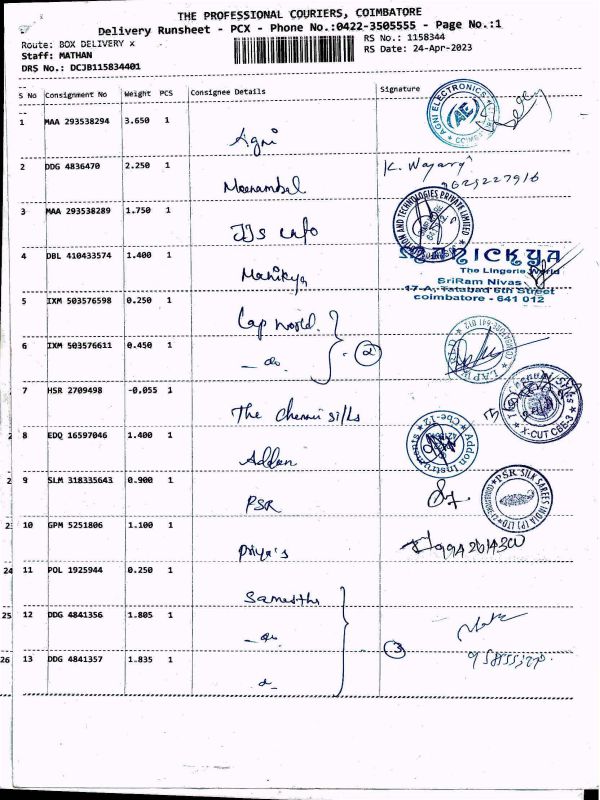 THE PROFESSIONAL COURIERS, COIMBATORE
Delivery Runsheet - PCX - Phone No.:0422-3505555 - Page No.:1
Route: BOX DELIVERY x
RS No.: 1158344
Staff: MATHAN
RS Date: 24-Apr-2023
DRS No.: DCJB115834401
S No Consignment No Weight PCS Consignee Details Signature
1 MAA 293538294 3.650 1 Agni
AGNI ELECTRONICS
AE
2 DDG 4836470 2.250 1 Meenambal
3 MAA 293538289 1.750 1 JJs info
AND TECHNOLOGIES PRIVATE LIMITED
4 DBL 410433574 1.400 1 Manikya
MANICKYA
The Lingerie World
SriRam Nivas
17-A, Tatabad 6th Street
coimbatore - 641 012
5 IXM 503576598 0.250 1 Lap world.
6 IXM 503576611 0.450 1 - do. 2
7 HSR 2709498 -0.055 1 The chennai silks
X-CUT CBE-3
2 8 EDQ 16597046 1.400 1 Addon
Addon Instruments Cbe-12
2 9 SLM 318335643 0.900 1 PSR
PSR SILK SAREES INDIA (P) LTD
2 10 GPM 5251806 1.100 1 Priya's
24 11 POL 1925944 0.250 1
25 12 DDG 4841356 1.805 1 - do.
3
26 13 DDG 4841357 1.835 1